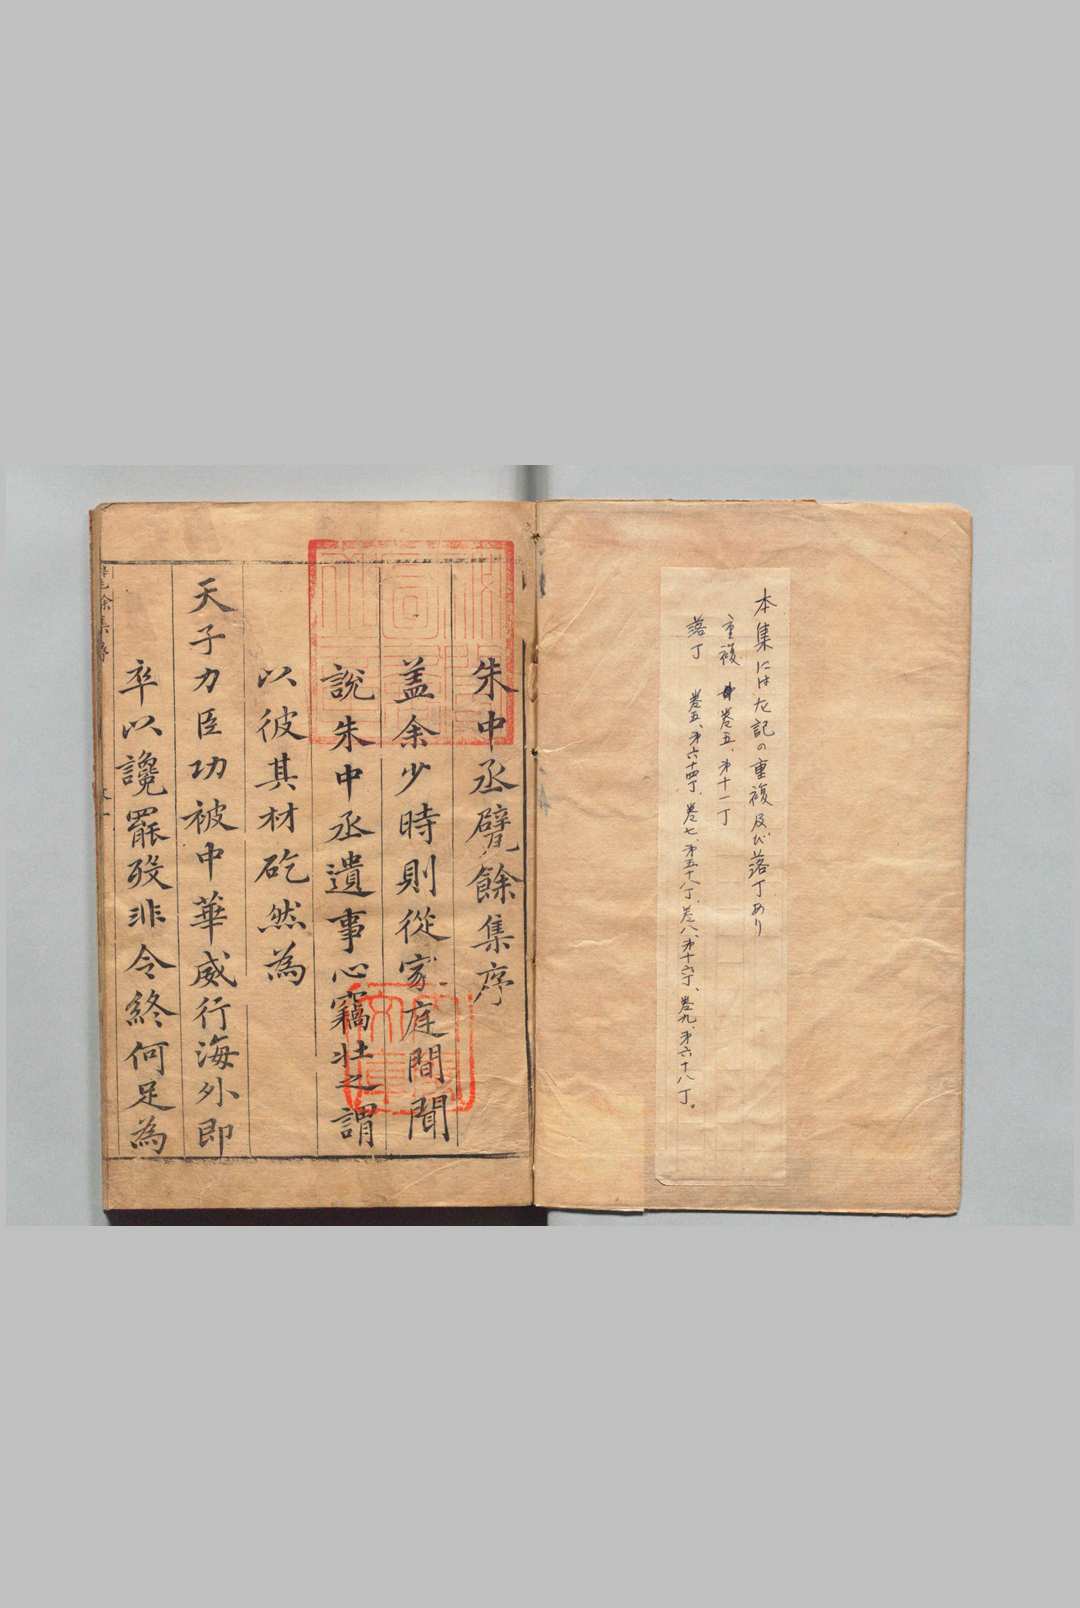 本集には左記の重複及び落丁あり
重複 巻五、第十一丁
落丁 巻五、第六十四丁、巻七、第五十八丁、巻八、第十六丁、巻九、第六十八丁。
朱中丞甓餘集序
盖余少時則從家庭間聞
説朱中丞遺事心竊壯之謂
以彼其材矻然為
天子力臣功被中華威行海外即
卒以讒罷歿非令終何足為
甓餘集序